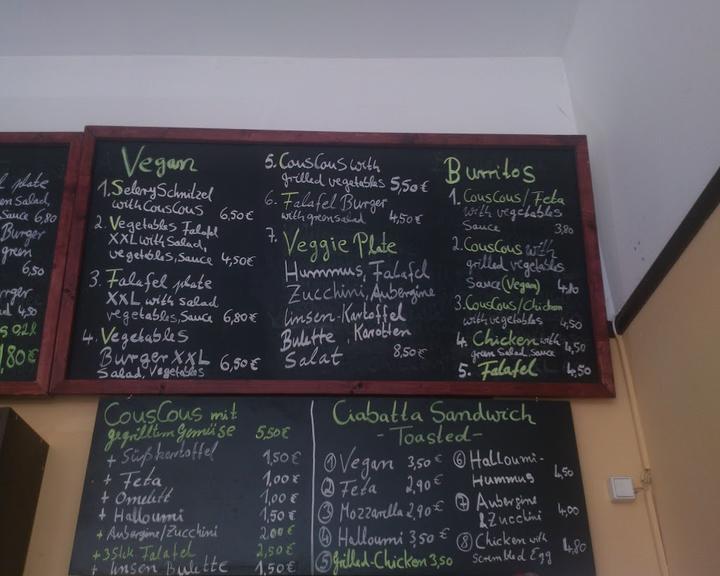 plate
Salad,
Sauce 6,80
Burger
green
6,50
4,50
1,80€
Vegan
1. Selery Schnitzel
with CousCous 6,50€
2. Vegetables Falafel
XXL with Salad,
vegetables, Sauce 4,50€
3. Falafel plate
XXL with salad
vegetables, Sauce 6,80€
4. Vegetables
Burger XXL
Salad, Vegetables 6,50€
5. CousCous with
grilled vegetables 5,50€
6. Falafel Burger
with green salad 4,50€
7.
Veggie Plate
Hummus, Falafel
Zucchini, Aubergine
Linsen-Kartoffel
Bulette, Karotten
Salat 8,50€
Burritos
1. CousCous/Feta
with vegetables
Sauce 3,80
2. CousCous with
grilled vegetables
Sauce (Vegan)
3. CousCous/Chicken
with vegetables 4,50
4. Chicken with
green Salad, Sauce 4,50
5. Falafel 4,50
CousCous mit
gegrilltem Gemüse 5,50€
+ Süßkartoffel 1,50€
+ Feta 1,00€
+ Omelett 1,00€
+ Halloumi 1,50€
+ Aubergine/Zucchini 2,00€
+ 3 Stck Falafel 2,50€
+ Linsen Bulette 1,50€
Ciabatta Sandwich
- Toasted -
1 Vegan 3,50€
2 Feta 2,90€
3 Mozzarella 2,90€
4 Halloumi 3,50€
5 Grilled-Chicken 3,50
6 Halloumi-
Hummus 4,50
7 Aubergine
& Zucchini 4,00
8 Chicken with
scrembled Egg 4,80